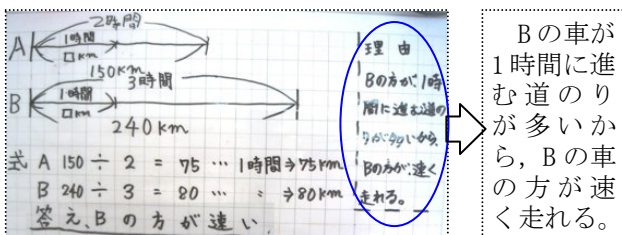 2時間
A
1時間
□km
150km
3時間
B
1時間
□km
240km
式 A 150÷2=75…1時間→75km
B 240÷3=80… 〃 →80km
答え、Bの方が速い
理由
Bの方が、1時
間に進む道の
りが多いから、
Bの方が速く
走れる。
Bの車が
1時間に進
む道のり
が多いか
ら，Bの車
の方が速
く走れる。